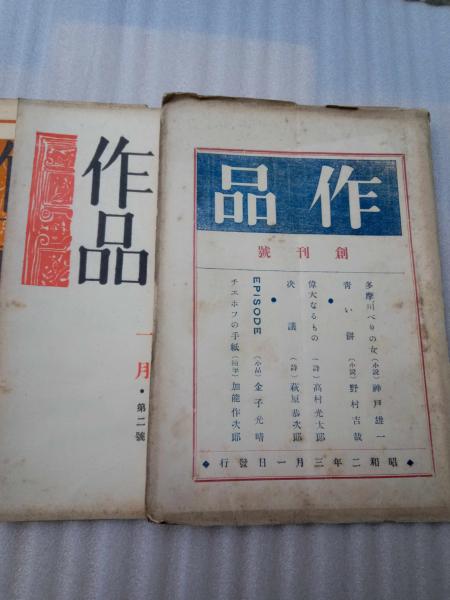 作品
創刊號
多摩川べりの女(小説)神戸雄一
青い餅(小説)野村吉哉
偉大なるもの(詩)高村光太郎
決議(詩)萩原恭次郎
EPISODE(小品)金子光晴
チエホフの手紙 加能作次郎
昭和二年三月一日發行
作品
月・第二號